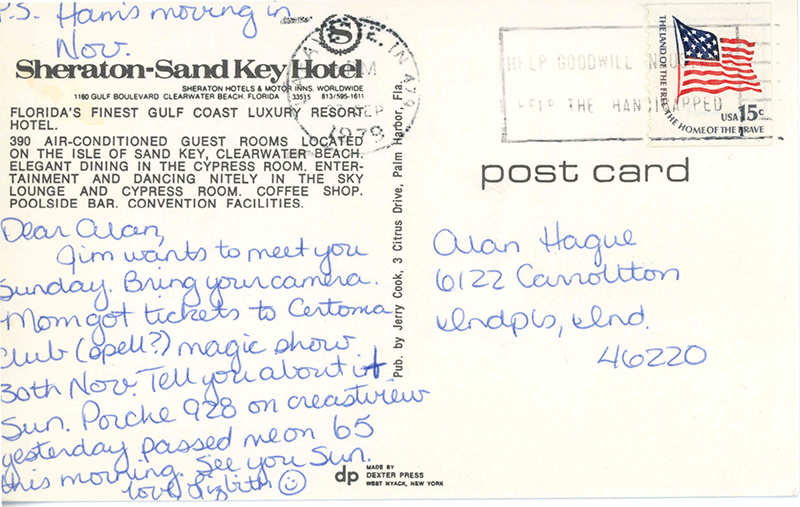 P.S. Harris moving in
Nov.
S
Sheraton-Sand Key Hotel
SHERATON HOTELS & MOTOR INNS. WORLDWIDE
1160 GULF BOULEVARD CLEARWATER BEACH, FLORIDA 33515 813/595-1611
FLORIDA'S FINEST GULF COAST LUXURY RESORT
HOTEL.
390 AIR-CONDITIONED GUEST ROOMS LOCATED
ON THE ISLE OF SAND KEY, CLEARWATER BEACH.
ELEGANT DINING IN THE CYPRESS ROOM. ENTER-
TAINMENT AND DANCING NITELY IN THE SKY
LOUNGE AND CYPRESS ROOM. COFFEE SHOP.
POOLSIDE BAR. CONVENTION FACILITIES.
Dear Alan,
Jim wants to meet you
Sunday. Bring your camera.
Mom got tickets to Certoma
Club (spell?) magic show
30th Nov. Tell you about it
Sun. Porche 928 on creastview
yesterday passed me on 65
this morning. See you Sun.
love, Lizbith
Pub. by Jerry Cook, 3 Citrus Drive, Palm Harbor, Fla.
dp
MADE BY
DEXTER PRESS
WEST NYACK, NEW YORK
WAYNE, IN
PM
SEP
1979
HELP GOODWILL
HELP THE HANDICAPPED
THE LAND OF THE FREE THE HOME OF THE BRAVE
USA 15c
post card
Alan Hague
6122 Carrollton
Indpls, Ind.
46220